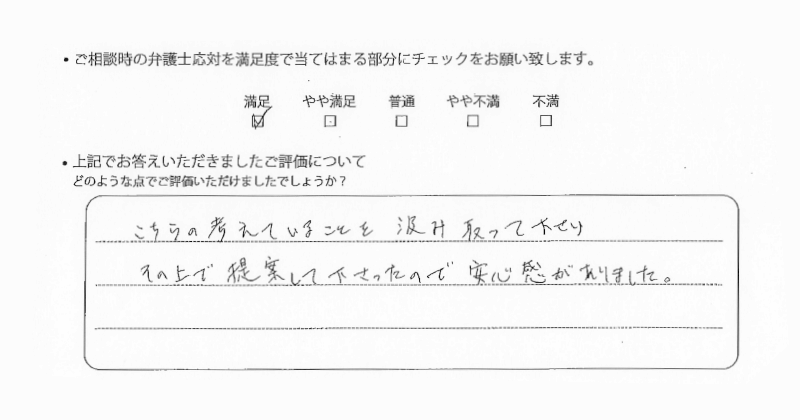 ・ご相談時の弁護士応対を満足度で当てはまる部分にチェックをお願い致します。
満足 やや満足 普通 やや不満 不満
☑ □ □ □ □
・上記でお答えいただきましたご評価について
どのような点でご評価いただけましたでしょうか？
こちらの考えていることを汲み取って下さり
その上で提案して下さったので安心感がありました。